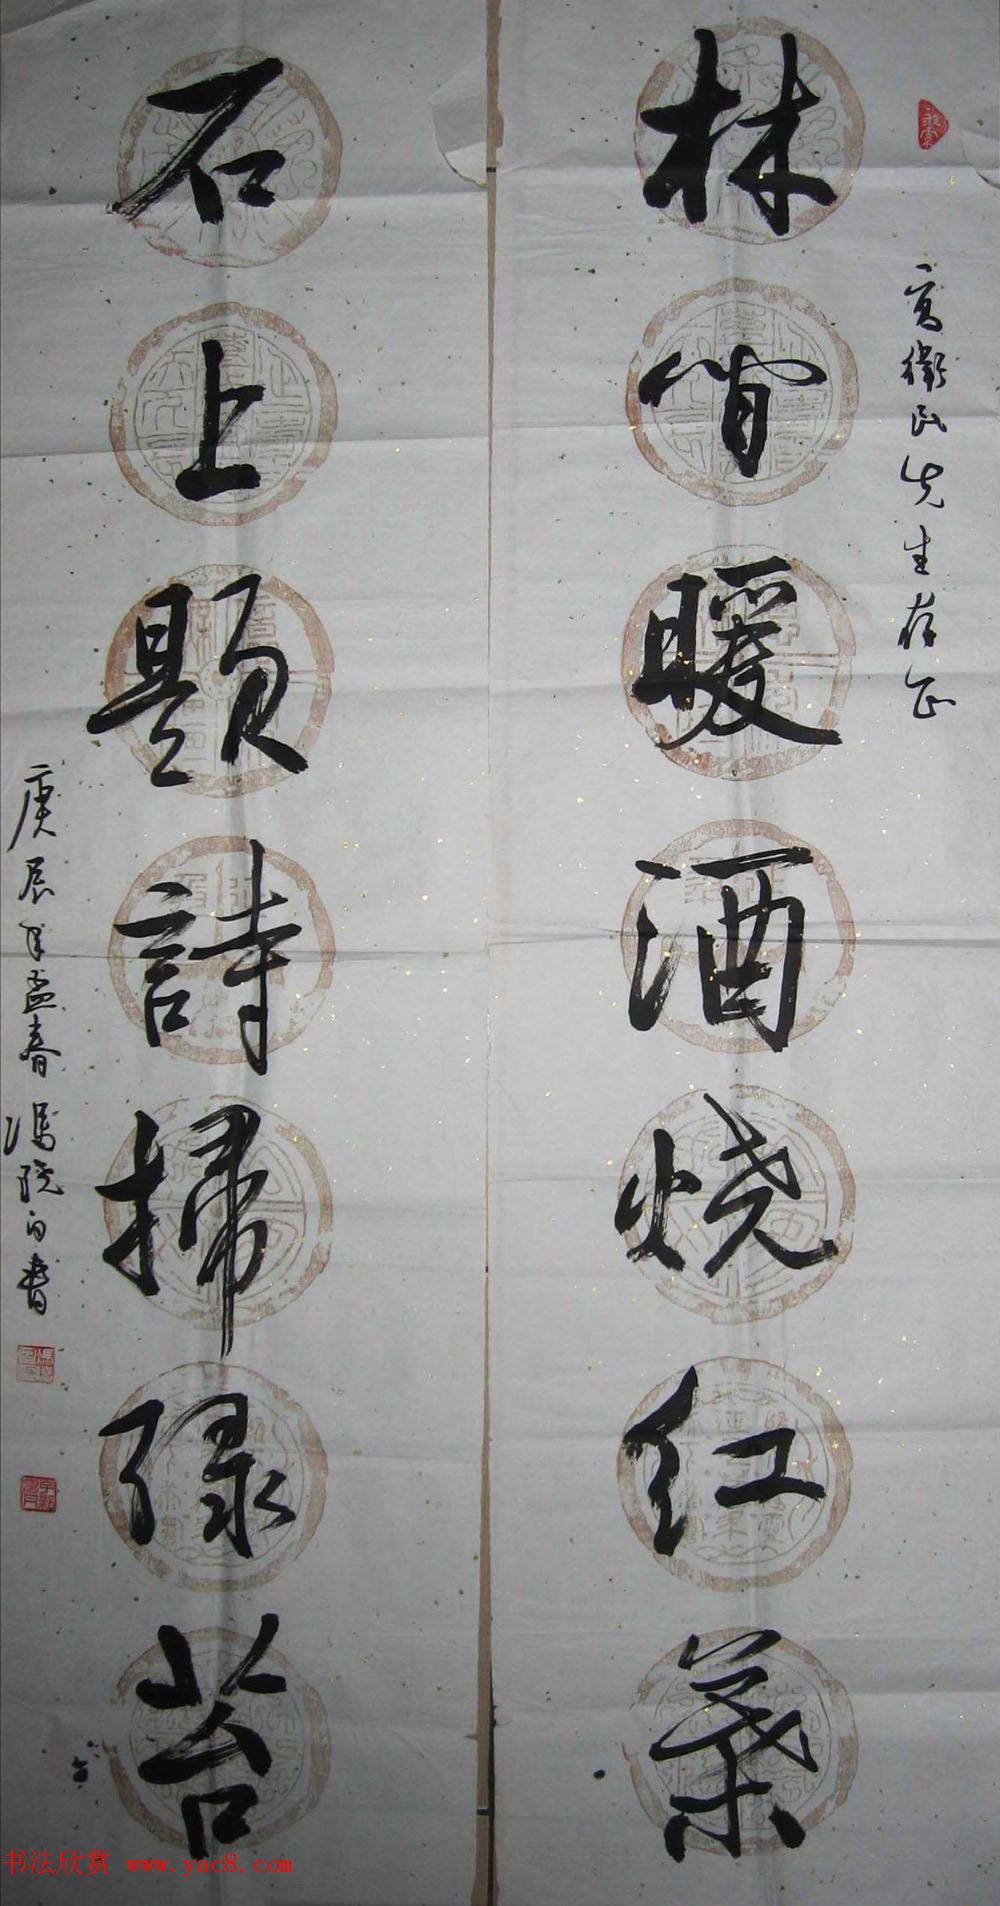 林间暖酒烧红葉
石上题詩掃绿苔
庚辰年孟春 冯晓白書
先生存正
书法欣赏 www.yac8.com